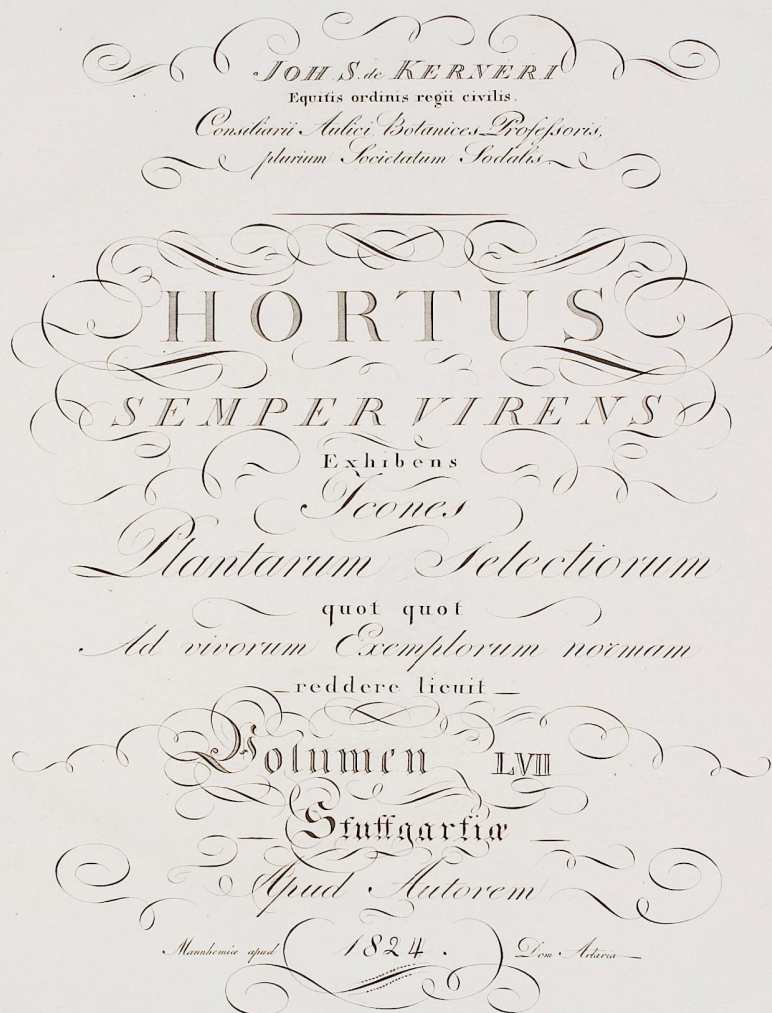 JOH. S. de KERNERI
Equitis ordinis regii civilis,
Consiliarii Aulici Botanices Professoris,
plurium Societatum Sodalis.
HORTUS
SEMPER VIRENS
Exhibens
Icones
Plantarum Selectiorum
quot quot
Ad vivorum Exemplorum normam
reddere licuit
Volumen LVII
Stuttgartiæ
Apud Autorem
Mannhemiæ apud 1824. Dom Artaria